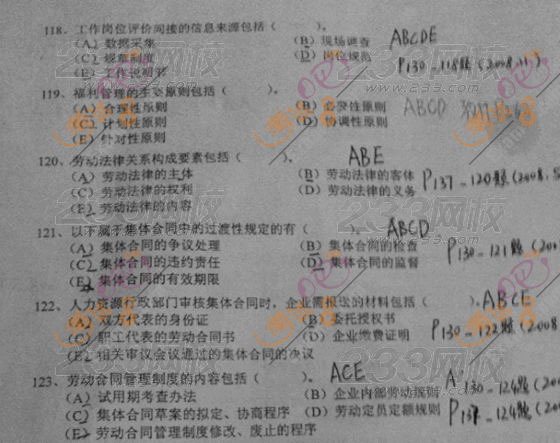 118、工作岗位评价间接的信息来源包括（　　）。 ABCDE
（A）数据采集　（B）现场调查
（C）规章制度　（D）岗位规范 P130-118题(2008.11)
（E）工作说明书
119、福利管理的主要原则包括（　　）。
（A）合理性原则　（B）必要性原则 ABCD
（C）计划性原则　（D）协调性原则
（E）针对性原则
120、劳动法律关系构成要素包括（　　）。 ABE
（A）劳动法律的主体　（B）劳动法律的客体 P137-120题(2008.5
（C）劳动法律的权利　（D）劳动法律的义务
（E）劳动法律的内容
121、以下属于集体合同中的过渡性规定的有（　　）。 ABCD
（A）集体合同的争议处理　（B）集体合同的检查 P130-121题(200
（C）集体合同的违约责任　（D）集体合同的监督
（E）集体合同的有效期限
122、人力资源行政部门审核集体合同时，企业需报送的材料包括（　　）。ABCE
（A）双方代表的身份证　（B）委托授权书
（C）职工代表的劳动合同书　（D）企业缴费证明 P130-122题(2008
（E）相关审议会议通过的集体合同的决议
123、劳动合同管理制度的内容包括（　　）。 ACE
（A）试用期考查办法　（B）企业内部劳动规则 130-124题(200
（C）集体合同草案的拟定、协商程序　（D）劳动定员定额规则 124题(200
（E）劳动合同管理制度修改、废止的程序
233网校